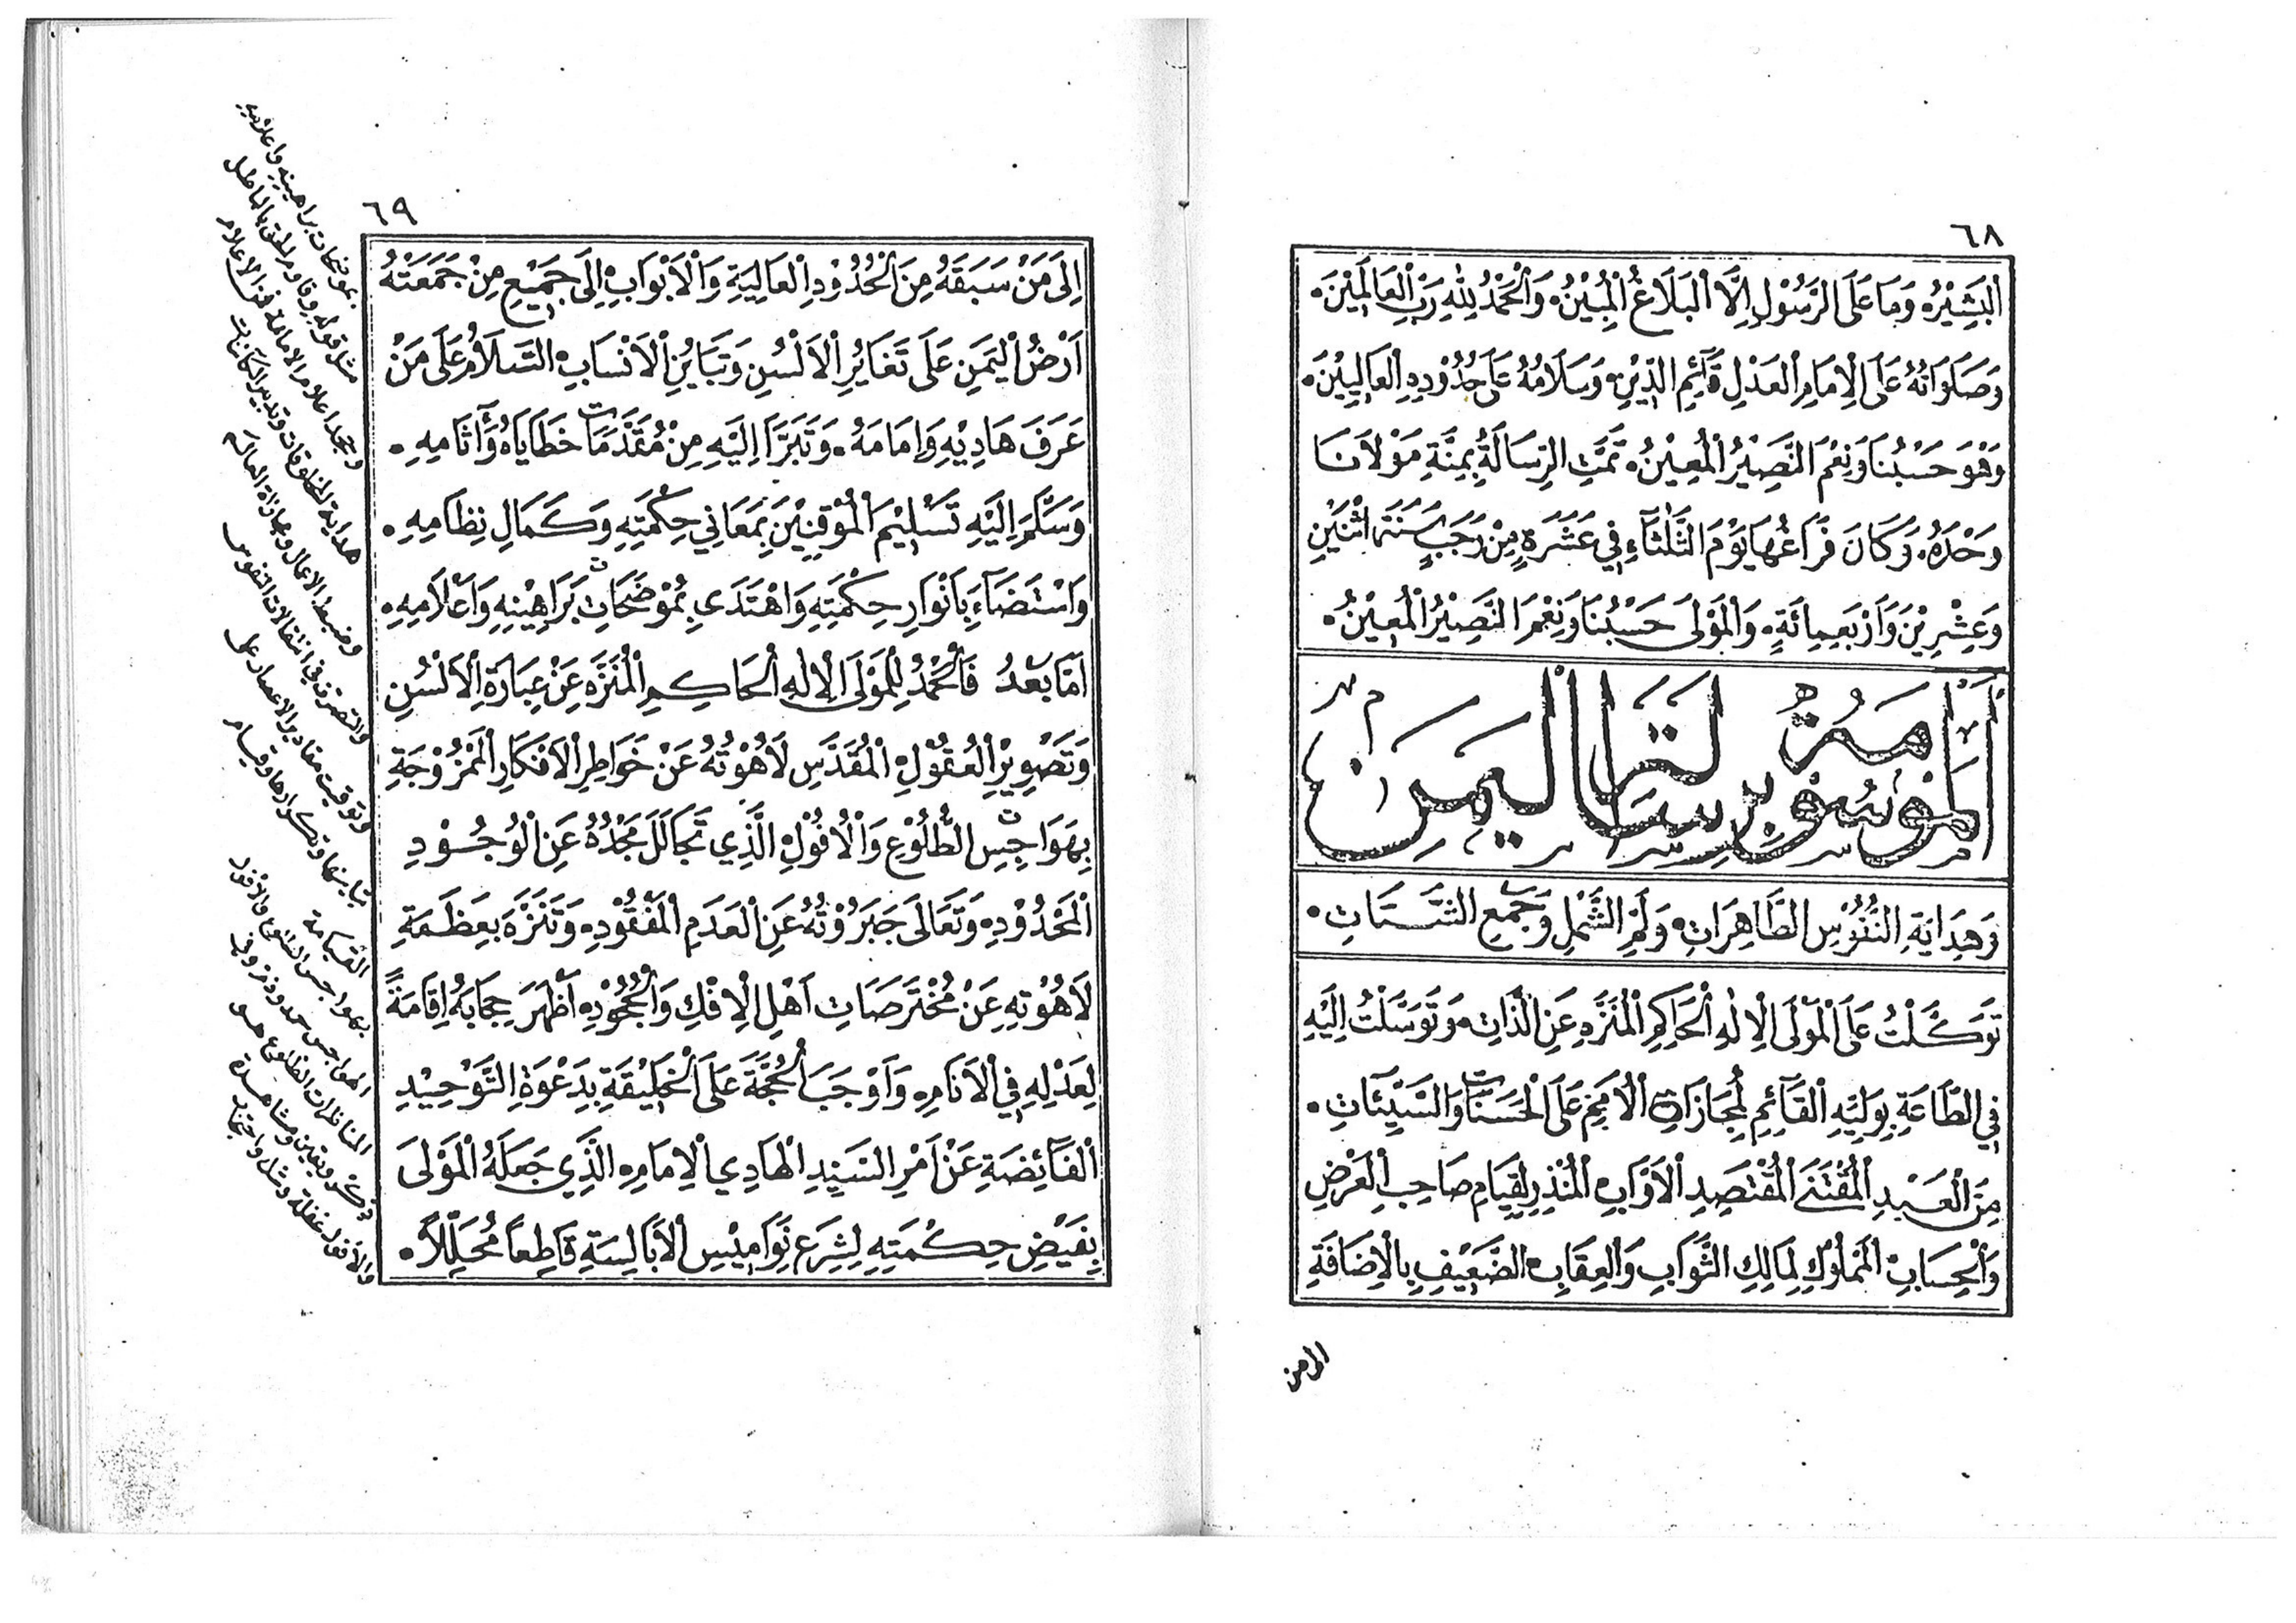 ٦٨
اَلْبَشِيْرُ، وَمَا عَلَى الرَّسُوْلِ اِلَّا الْبَلَاغُ الْمُبِيْنُ، وَالْحَمْدُ لِلّٰهِ رَبِّ الْعَالَمِيْنَ.
وَصَلَوَاتُهُ عَلَى الْاِمَامِ الْعَدْلِ قَآئِمِ الدِّيْنِ، وَسَلَامُهُ عَلَى حُدُوْدِهِ الْعَالِيِيْنَ.
وَهْوَ حَسْبُنَا وَنِعْمَ النَّصِيْرُ الْمُعِيْنُ. تَمَّتِ الرِّسَالَةُ بِمِنَّةِ مَوْلَانَا
وَحْدَهُ. وَكَانَ فَرَاغُهَا يَوْمَ الثَّلَثَآءِ فِي عَشَرَةٍ مِنْ رَجَبٍ سَنَةَ اثْنَيْنِ
وَعِشْرِيْنَ وَاَرْبَعِمِائَةٍ، وَالْمَوْلَى حَسْبُنَا وَنِعْمَ النَّصِيْرُ الْمُعِيْنُ.
اَلْمَوْسُوْمَةُ بِرِسَالَةِ الْيَمَنِ
وَهِدَايَةِ النُّفُوْسِ الطَّاهِرَاتِ، وَلَمِّ الشَّمْلِ وَجَمْعِ الشَّتَاتِ.
تَوَكَّلْتُ عَلَى الْمَوْلَى الْاِلٰهِ الْحَاكِمِ الْمُنَزَّهِ عَنِ الذَّاتِ، وَتَوَسَّلْتُ اِلَيْهِ
فِي الطَّاعَةِ بِوَلِيِّهِ الْقَآئِمِ لِمُجَازَاةِ الْاُمَمِ عَلَى الْحَسَنَاتِ وَالسَّيِّئَاتِ.
مِنَ الْعَبْدِ الْمُقْتَنَى الْمُقْتَصِدِ الْاَوَّابِ، الْمُنْذِرِ لِقِيَامِ صَاحِبِ الْعَرْضِ
وَالْحِسَابِ، الْمَمْلُوْكِ لِمَالِكِ الثَّوَابِ وَالْعِقَابِ، الضَّعِيْفِ بِالْاِضَافَةِ
٦٩
اِلَى مَنْ سَبَقَهُ مِنَ الْحُدُوْدِ الْعَالِيَةِ وَالْاَبْوَابِ، اِلَى جَمِيْعِ مِنْ جَمَعَتْهُ
اَرْضُ الْيَمَنِ عَلَى تَغَايُرِ الْاَلْسُنِ وَتَبَايُنِ الْاَنْسَابِ، السَّلَامُ عَلَى مَنْ
عَرَفَ هَادِيْهِ وَاِمَامَهُ. وَتَبَرَّاَ اِلَيْهِ مِنْ مُقَدَّمَاتِ خَطَايَاهُ وَآثَامِهِ.
وَسَلَّمَ اِلَيْهِ تَسْلِيْمَ الْمُوْقِنِيْنَ بِمَعَانِي حِكْمَتِهِ وَكَمَالِ نِظَامِهِ.
وَاسْتَضَآءَ بِاَنْوَارِ حِكْمَتِهِ وَاهْتَدَى بِمُوْضَحَاتِ بَرَاهِيْنِهِ وَاَعْلَامِهِ.
اَمَّا بَعْدُ فَالْحَمْدُ لِلْمَوْلَى الْاِلٰهِ الْحَاكِمِ الْمُنَزَّهِ عَنْ عِبَارَةِ الْاَلْسُنِ
وَتَصْوِيْرِ الْعُقُوْلِ، الْمُقَدَّسِ لَاهُوْتُهُ عَنْ خَوَاطِرِ الْاَفْكَارِ الْمَمْزُوْجَةِ
بِهَوَاجِسِ الطُّلُوْعِ وَالْاُفُوْلِ، الَّذِي تَجَالَلَ مَجْدُهُ عَنِ الْوُجُوْدِ
الْمَحْدُوْدِ، وَتَعَالَى جَبَرُوْتُهُ عَنِ الْعَدَمِ الْمَفْقُوْدِ، وَتَنَزَّهَ بِعَظَمَةِ
لَاهُوْتِهِ عَنْ مُخْتَرَصَاتِ اَهْلِ الْاِفْكِ وَالْجُحُوْدِ، اَظْهَرَ حِجَابَهُ اِقَامَةً
لِعَدْلِهِ فِي الْاَنَامِ، وَاَوْجَبَ الْحُجَّةَ عَلَى الْخَلِيْقَةِ بِدَعْوَةِ التَّوْحِيْدِ
الْفَآئِضَةِ عَنْ اَمْرِ السَّيِّدِ الْهَادِي الْاِمَامِ، الَّذِي جَعَلَهُ الْمَوْلَى
بِفَيْضِ حِكْمَتِهِ لِشِرَعِ نَوَامِيْسِ الْاَبَالِسَةِ قَاطِعاً مُحَلِّلاً.
بموضحات براهينه واعلامه
هداية المخلوقات وتدبير الكائنات
وضبط الاعمال ومجازاة العالم
والتصرف في انتقالات النفوس
القيامة